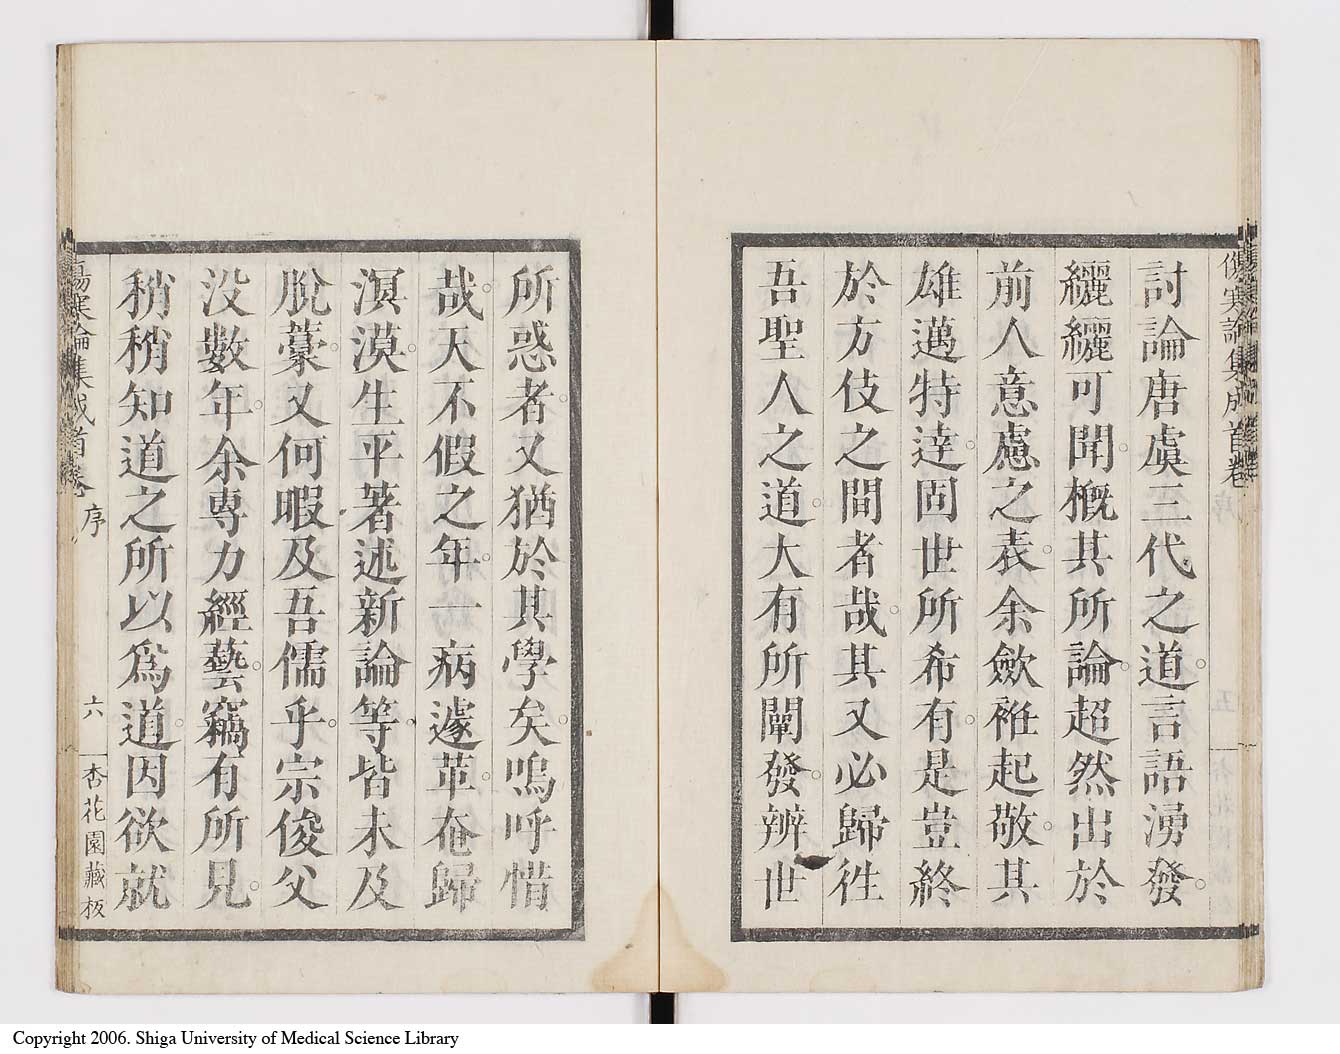 傷寒論集成首卷
討論唐虞三代之道。言語湧發。
纚纚可聞。槪其所論。超然出於
前人意慮之表。余歛袵起敬。其
雄邁特達。固世所希有。是豈終
於方伎之間者哉。其又必歸徃
吾聖人之道。大有所闡發。辨世
所惑者。又猶於其學矣。嗚呼惜
哉。天不假之年。一病遽革。奄歸
溟漠。生平著述新論等。皆未及
脫藁。又何暇及吾儒乎。宗俊父
没數年。余專力經藝。竊有所見。
稍稍知道之所以爲道。因欲就
傷寒論集成首卷
序
六
杏花園藏板
Copyright 2006. Shiga University of Medical Science Library